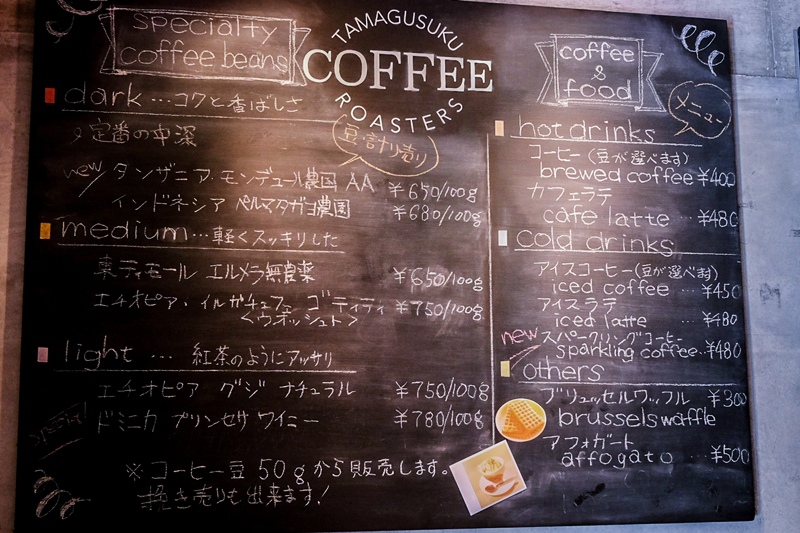 specialty
coffee beans
TAMAGUSUKU
COFFEE
ROASTERS
豆・計り売り
dark…コクと香ばしさ
定番の中深
new タンザニア モンデュール農園 AA ¥650/100g
インドネシア ペルマタガヨ農園 ¥680/100g
medium…軽くスッキリした
東ティモール エルメラ無農薬 ¥650/100g
エチオピア・イルガチェフェ ゴティティ ¥750/100g
<ウォッシュト>
light … 紅茶のようにアッサリ
エチオピア グジ ナチュラル ¥750/100g
special
ドミニカ プリンセサ ワイニー ¥780/100g
※コーヒー豆 50gから販売します。
挽き売りも出来ます!
coffee
&
food
メニュー
hot drinks
コーヒー(豆が選べます)
brewed coffee ¥400
カフェラテ
cafe latte … ¥480
cold drinks
アイスコーヒー(豆が選べます)
iced coffee … ¥450
アイスラテ
iced latte … ¥480
new スパークリングコーヒー
sparkling coffee.. ¥480
others
ブリュッセルワッフル ¥300
brussels waffle
アフォガート
affogato … ¥500